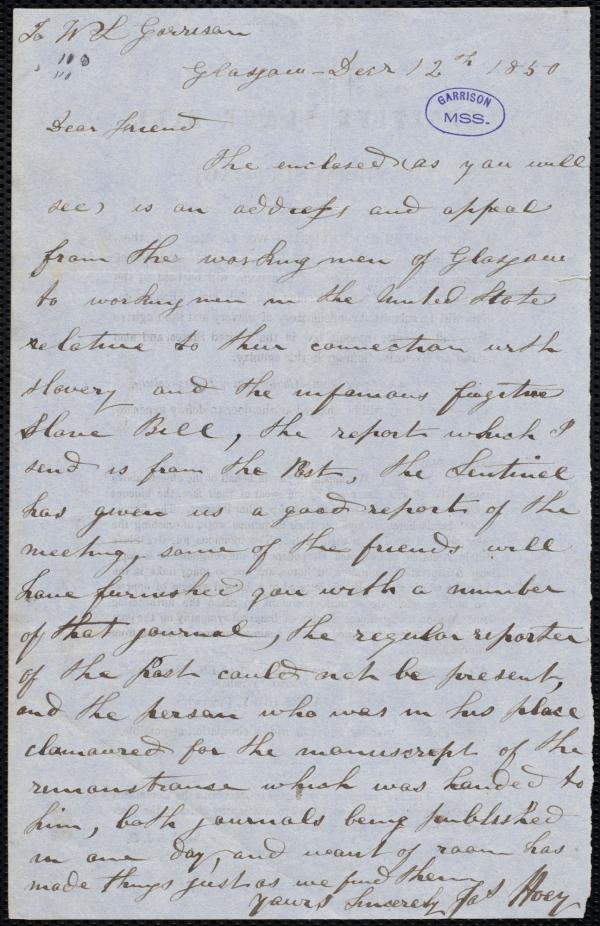 To W L Garrison
Glasgow - Decr 12th 1850
GARRISON
MSS.
Dear friend
The enclosed (as you will
see) is an address and appeal
from the working men of Glasgow
to working men in the United States
relative to their connection with
slavery and the infamous fugitive
Slave Bill, the report which I
send is from the Post, the Sentinel
has given us a good report of the
meeting, some of the friends will
have furnished you with a number
of that journal, the regular reporter
of the Post could not be present,
and the person who was in his place
clamoured for the manuscript of the
remonstrance which was handed to
him, both journals being published
in one day, and want of room has
made things just as we find them
Yours Sincerely Jas Hoey